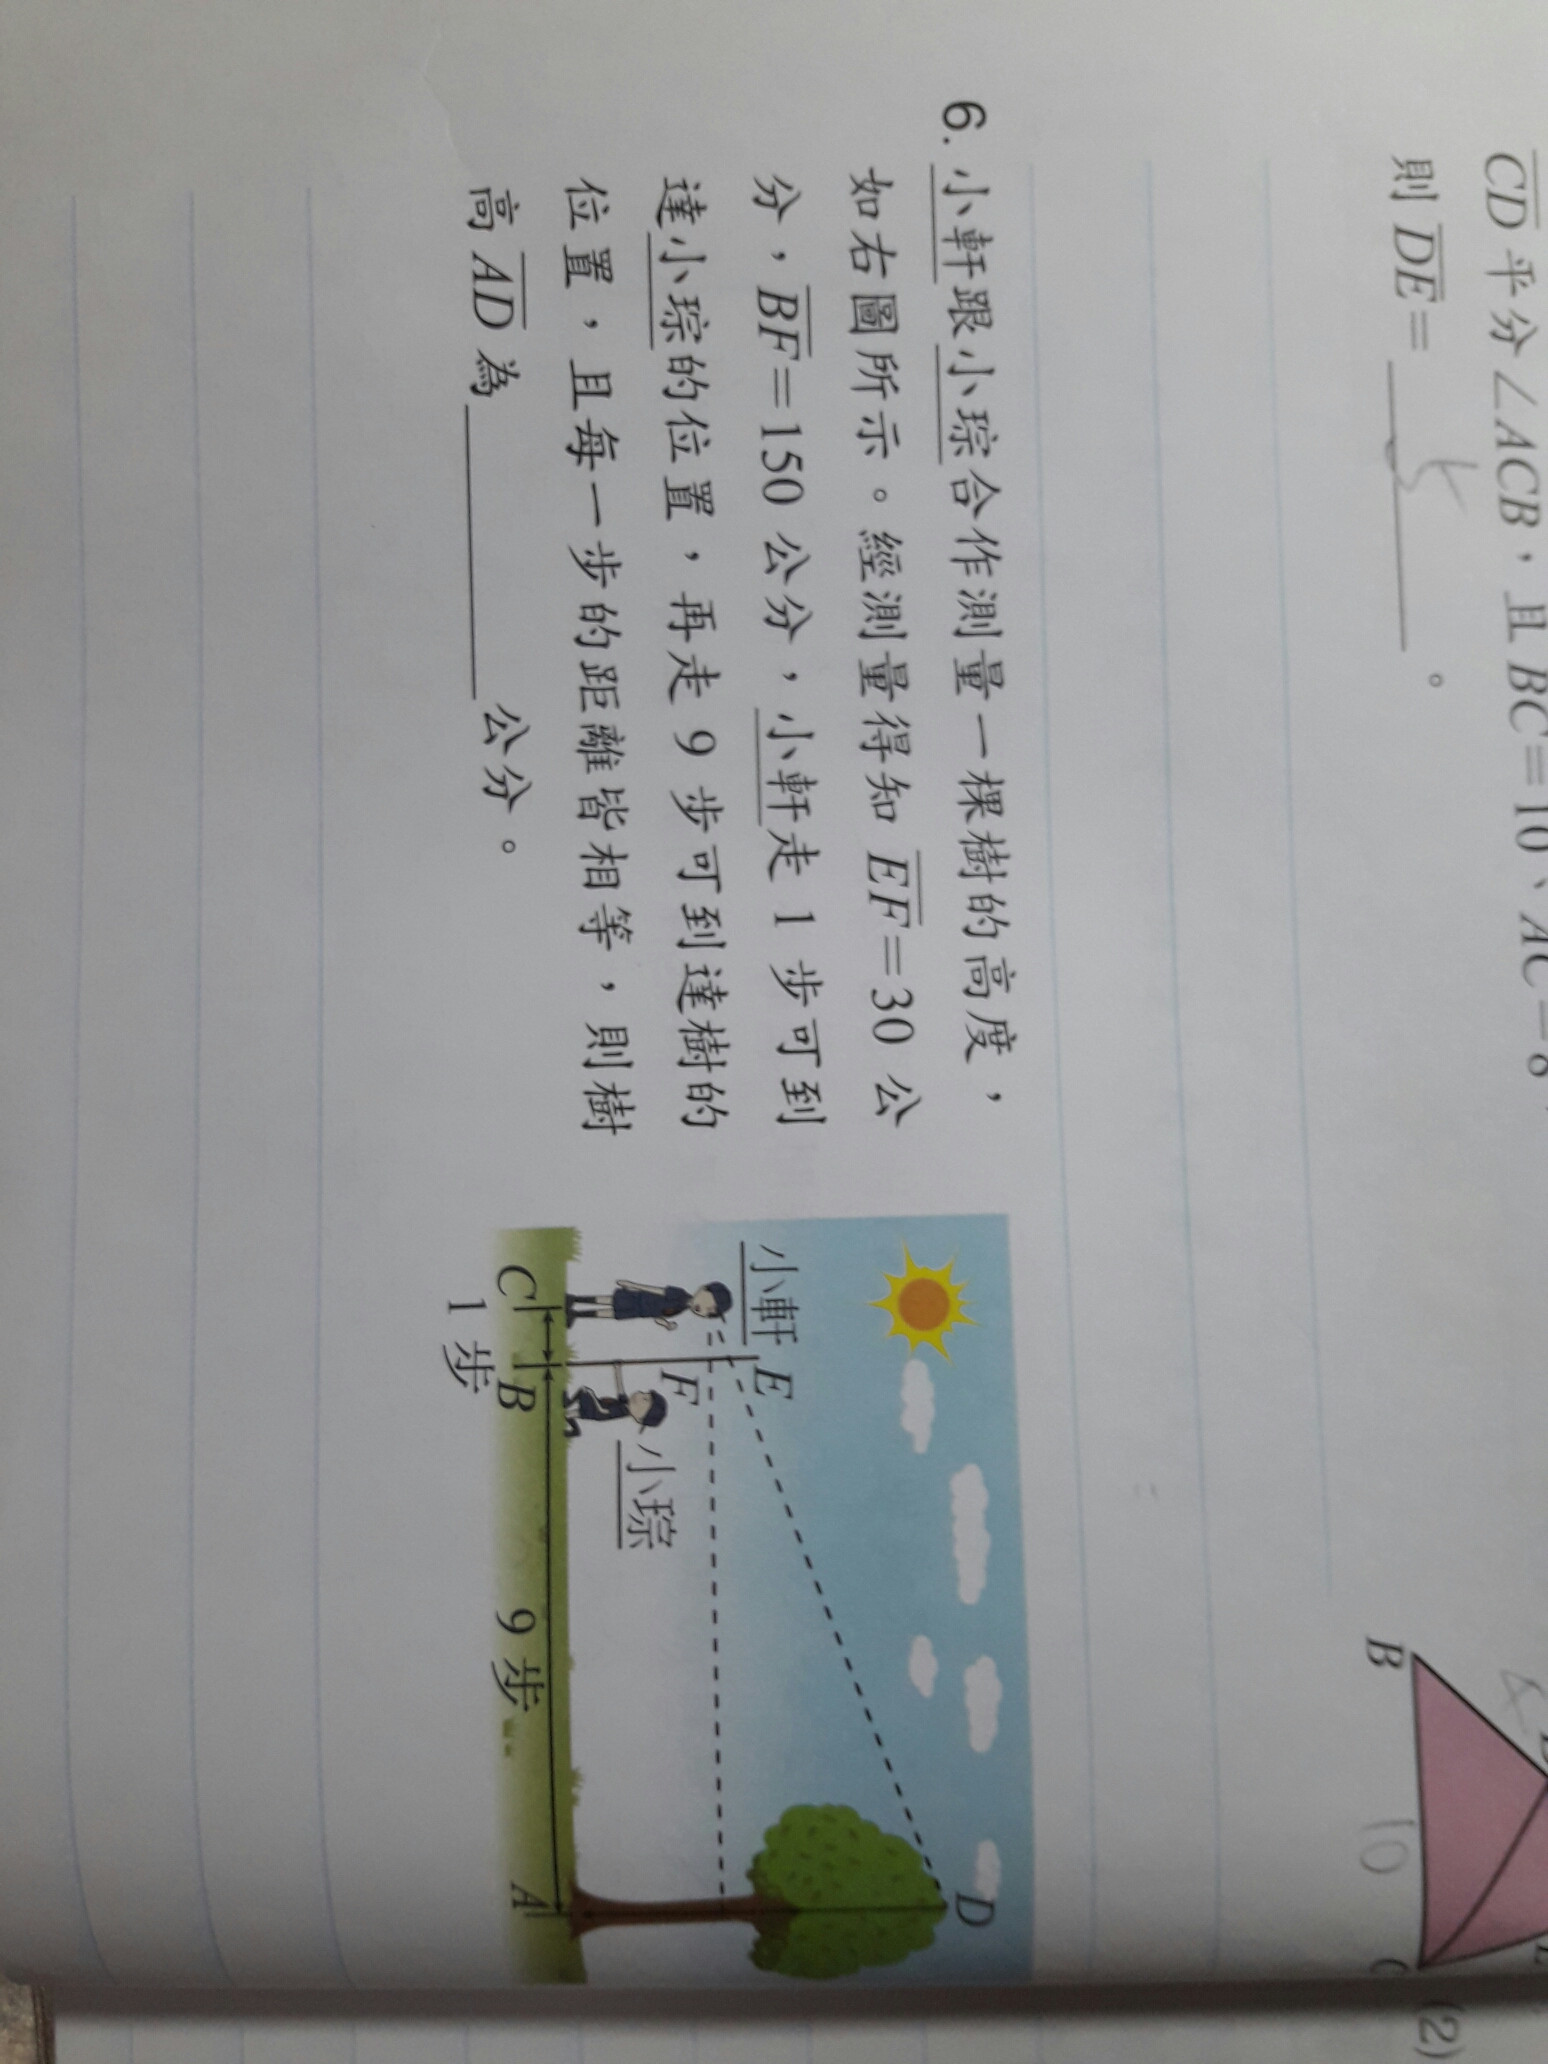 CD 平分∠ACB，且 BC=10、AC=8，
則 DE=
。
6. 小軒跟小琮合作測量一棵樹的高度，
如右圖所示。經測量得知 EF=30 公
分，BF=150 公分，小軒走 1 步可到
達小琮的位置，再走 9 步可到達樹的
位置，且每一步的距離皆相等，則樹
高 AD 為 公分。
小軒
E
F
小琮
D
C
B
A
1 步
9 步
B
10
C
(2)